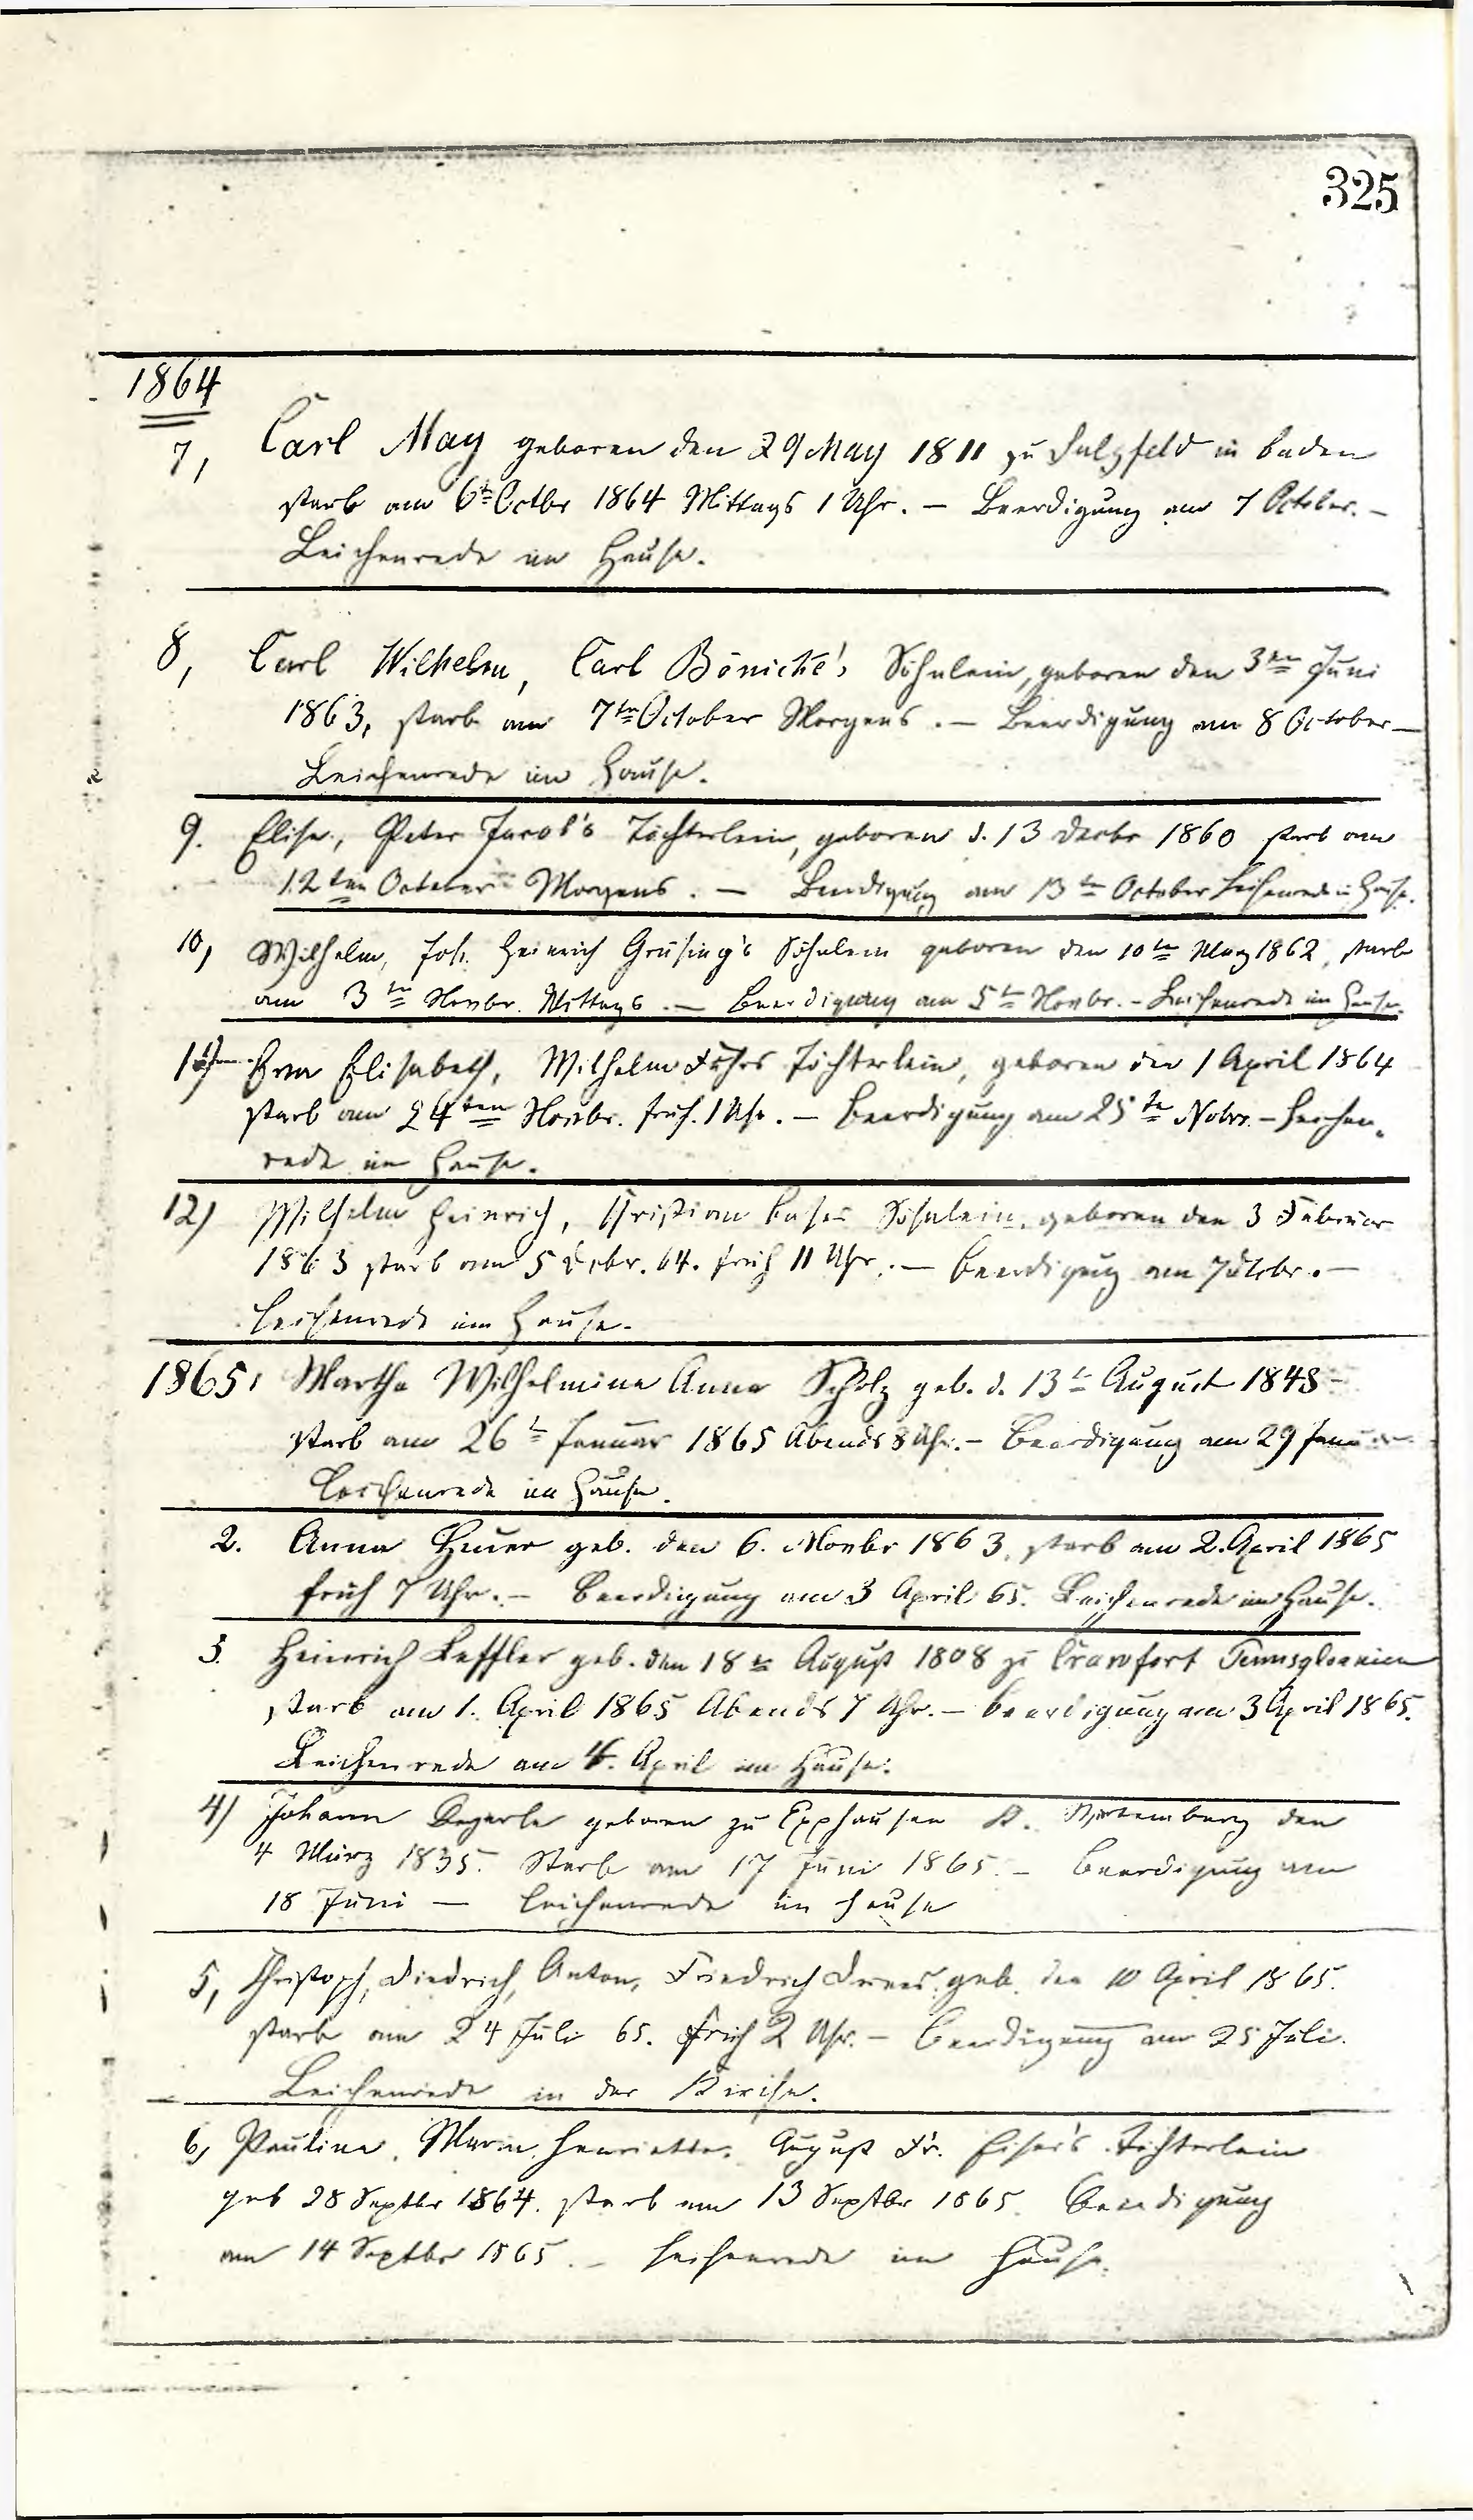 325
1864
7, Carl May geboren den 29 May 1811 zu Sulzfeld in Baden
starb am 6ten Octbr 1864 Mittags 1 Uhr. — Beerdigung am 7 October. —
Leichenrede im Hause.
8, Carl Wilhelm, Carl Bönicke's Söhnlein, geboren den 3ten Juni
1863, starb am 7ten October Morgens. — Beerdigung am 8 October —
Leichenrede im Hause.
9. Elise, Peter Jacob's Töchterlein, geboren d. 13 Decbr 1860 starb am
12ten October Morgens. — Beerdigung am 13ten October Leichenrede im Hause.
10, Wilhelm, Joh. Heinrich Grüsing's Söhnlein geboren den 10ten May 1862, starb
am 3ten Novbr. Mittags. — Beerdigung am 5ten Novbr. — Leichenrede im Hause.
Elisabeth, Wilhelm Töchterlein, geboren den 1 April 1864
starb am 24ten Novbr. früh 1 Uhr. — Beerdigung am 25ten Novbr. — Leichen-
rede im Hause.
12) Wilhelm Heinrich, Christian Söhnlein, geboren den 3 Februar
1863 starb am 5 Decbr. 64. früh 11 Uhr. — Beerdigung am 7 —
Leichenrede im Hause.
1865, Martha Wilhelmina Anna Scholz geb. d. 13t August 1848
starb am 26t Januar 1865 Abends 8 Uhr. — Beerdigung am 29 Januar
Leichenrede im Hause.
2. Anna geb. den 6. Novbr 1863, starb am 2. April 1865
früh 7 Uhr. — Beerdigung am 3 April 65. Leichenrede im Hause.
3. Heinrich Leffler geb. den 18ten August 1808 zu Crawfort Pennsylvanien
starb am 1. April 1865 Abends 7 Uhr. — Beerdigung am 3 April 1865.
Leichenrede am 4. April im Hause.
4) Johann geboren zu K. Würtemberg den
4 März 1835. Starb am 17 Juni 1865. — Beerdigung am
18 Juni — Leichenrede im Hause
5, Christoph, Diedrich, Anton, Friedrich Drees, geb. den 10 April 1865.
starb am 24 Juli 65. früh 2 Uhr. — Beerdigung am 25 Juli.
Leichenrede in der Kirche.
6, Paulina, Maria, Henriette, August Fr. Töchterlein
geb 28 Septbr 1864. starb am 13 Septbr 1865. Beerdigung
am 14 Septbr 1865. — Leichenrede im Hause.